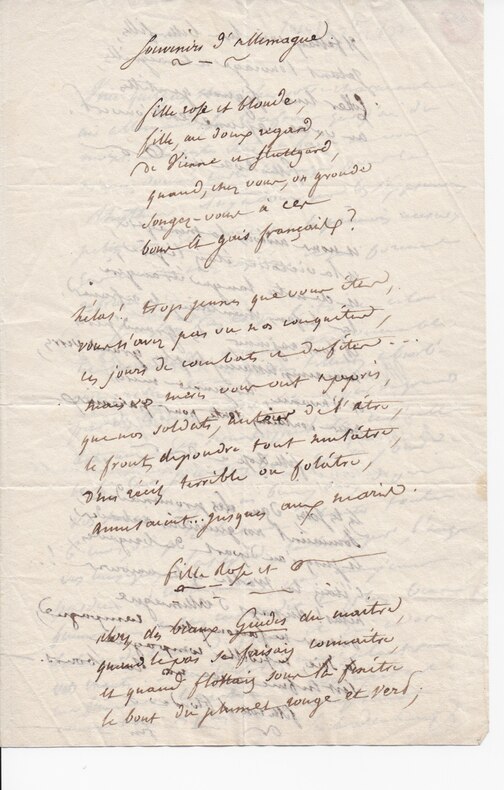 Souvenirs d'allemagne.
fille rose et blonde
fille, au doux regard
de Vienne et Stuttgard,
quand, chez vous, on gronde
songez-vous à ces
bons et gais français?
hélas! trop jeunes que vous êtes,
vous n'avez pas vu nos conquêtes,
ces jours de combats et de fêtes...
mais vos mères vous ont appris,
que nos soldats, autour de l'âtre,
le front de poudre tout mulâtre,
d'un récit terrible ou folâtre,
amusaient... jusques aux maris.
fille Rose et
des beaux Guides du maître,
quand le pas se faisait connaître,
et quand flottait sous la fenêtre
le bout du plumet rouge et vert,